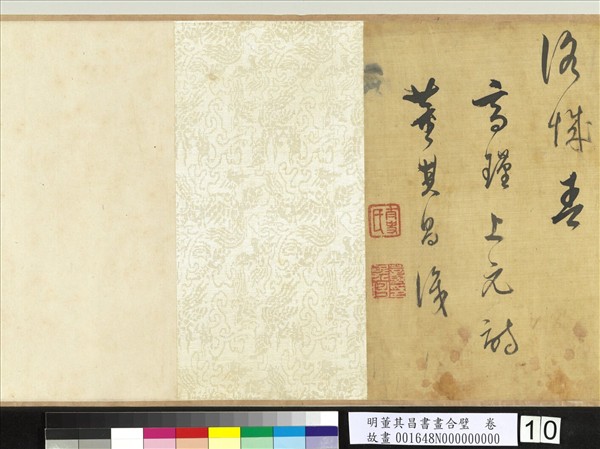 洛城春
高瑾上元詩
董其昌識
明董其昌書畫合璧 卷
故畫 001648N000000000
10